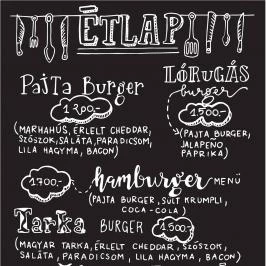 ÉTLAP
Pajta Burger
1200.-
(MARHAHÚS, ÉRLELT CHEDDAR,
SZÓSZOK, SALÁTA, PARADICSOM,
LILA HAGYMA, BACON)
LÓRÚGÁS
burger
1500.-
(PAJTA BURGER,
JALAPENO
PAPRIKA)
1700.-
hamburger MENÜ
(PAJTA BURGER, SÜLT KRUMPLI,
COCA-COLA)
Tarka BURGER 1500.-
(MAGYAR TARKA, ÉRLELT CHEDDAR, SZÓSZOK,
SALÁTA, PARADICSOM, LILA HAGYMA, BACON)